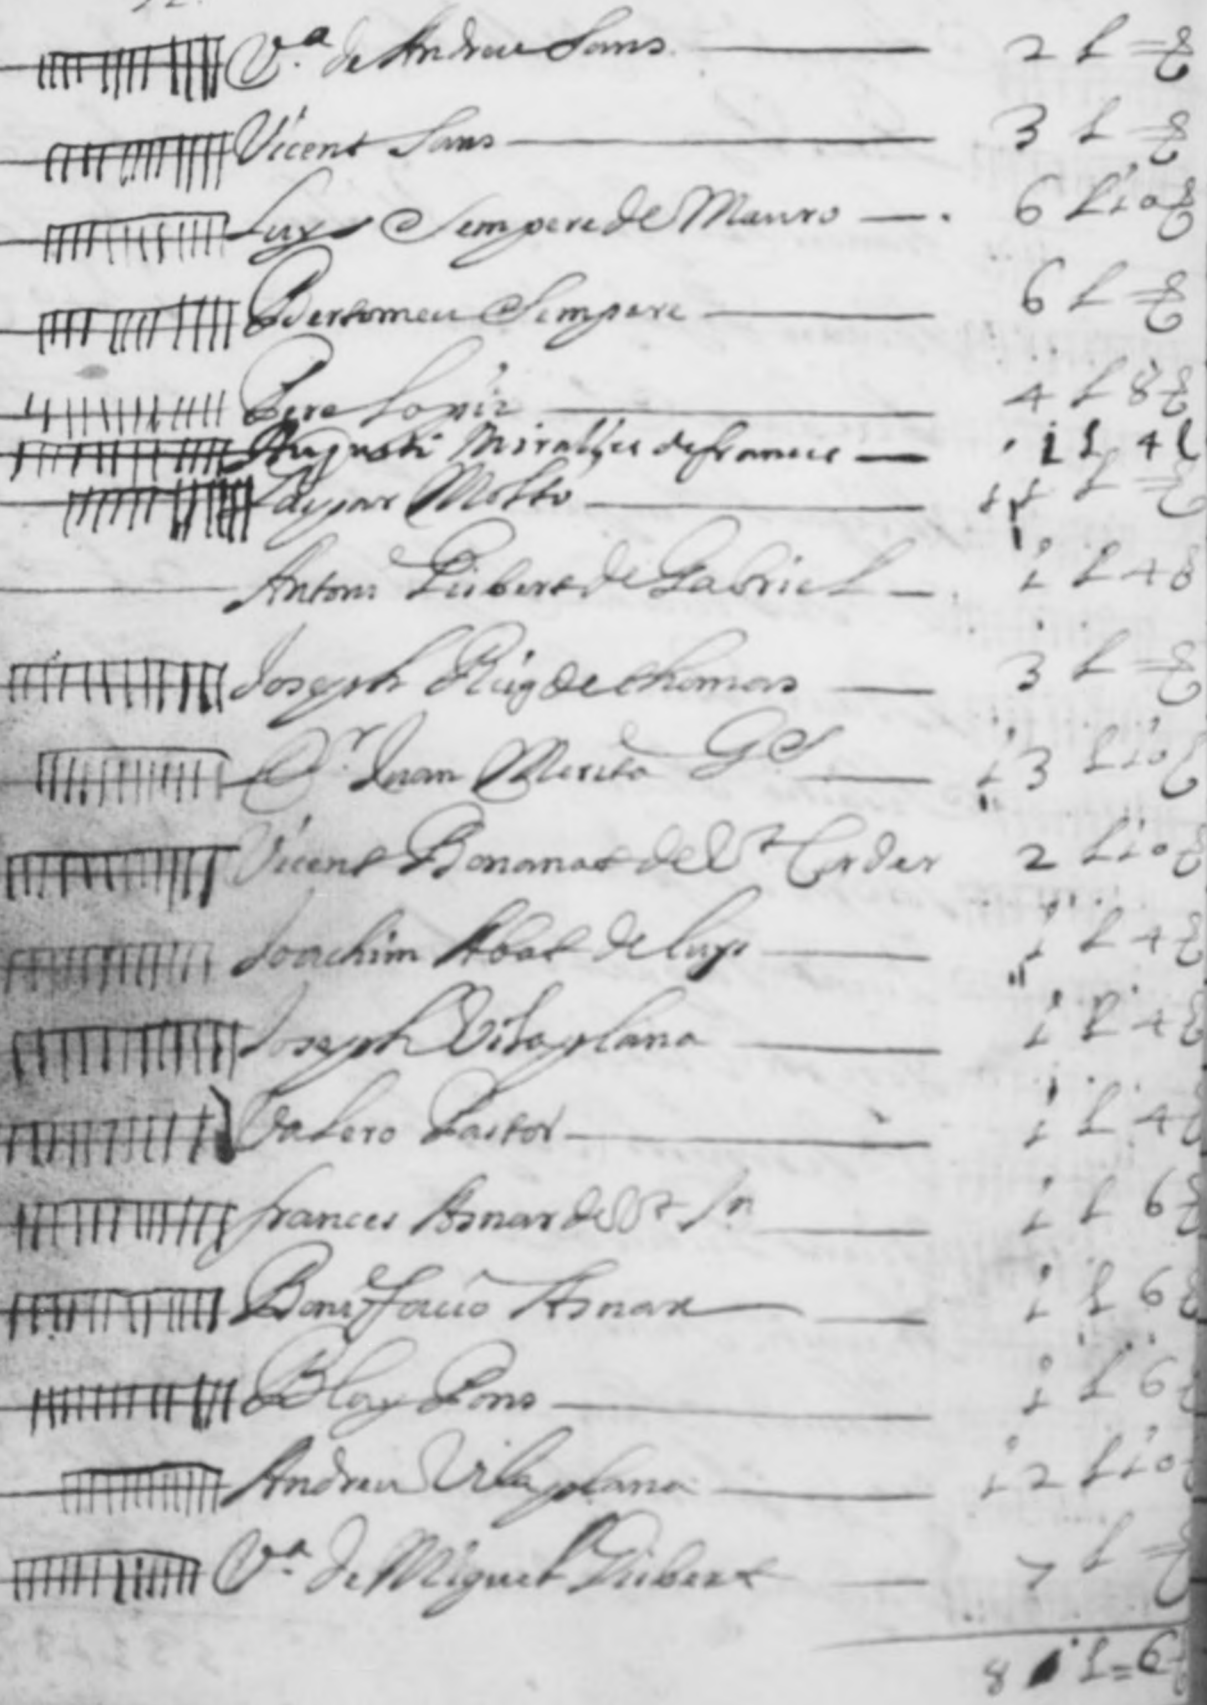 V.ª de Andreu Sans 2 L =
Vicent Sans 3 L =
Luys Sempere de Mauro 6 L 10
Bertomeu Sempere 6 L =
Pere 4 L 8
Augusti Miralles de frances 1 L 4
Gaspar Molto 11 L =
Antoni Gisbert de Gabriel 1 L 4
Joseph Puig de thomas 3 L =
D.r Juan Merita 13 L 10
Vicent Bonanat del Vt Carder 2 L 10
Joachim Abat de luys 1 L 4
Joseph Vilaplana 1 L 4
Valero Pastor 1 L 4
frances Asnar de Vt Jn 1 L 6
Bonifacio Asnar 1 L 6
Blay Pons 1 L 6
Andreu Vilaplana 12 L 10
V.ª de Miguel Gisbert 7 L =
8 1 L = 6